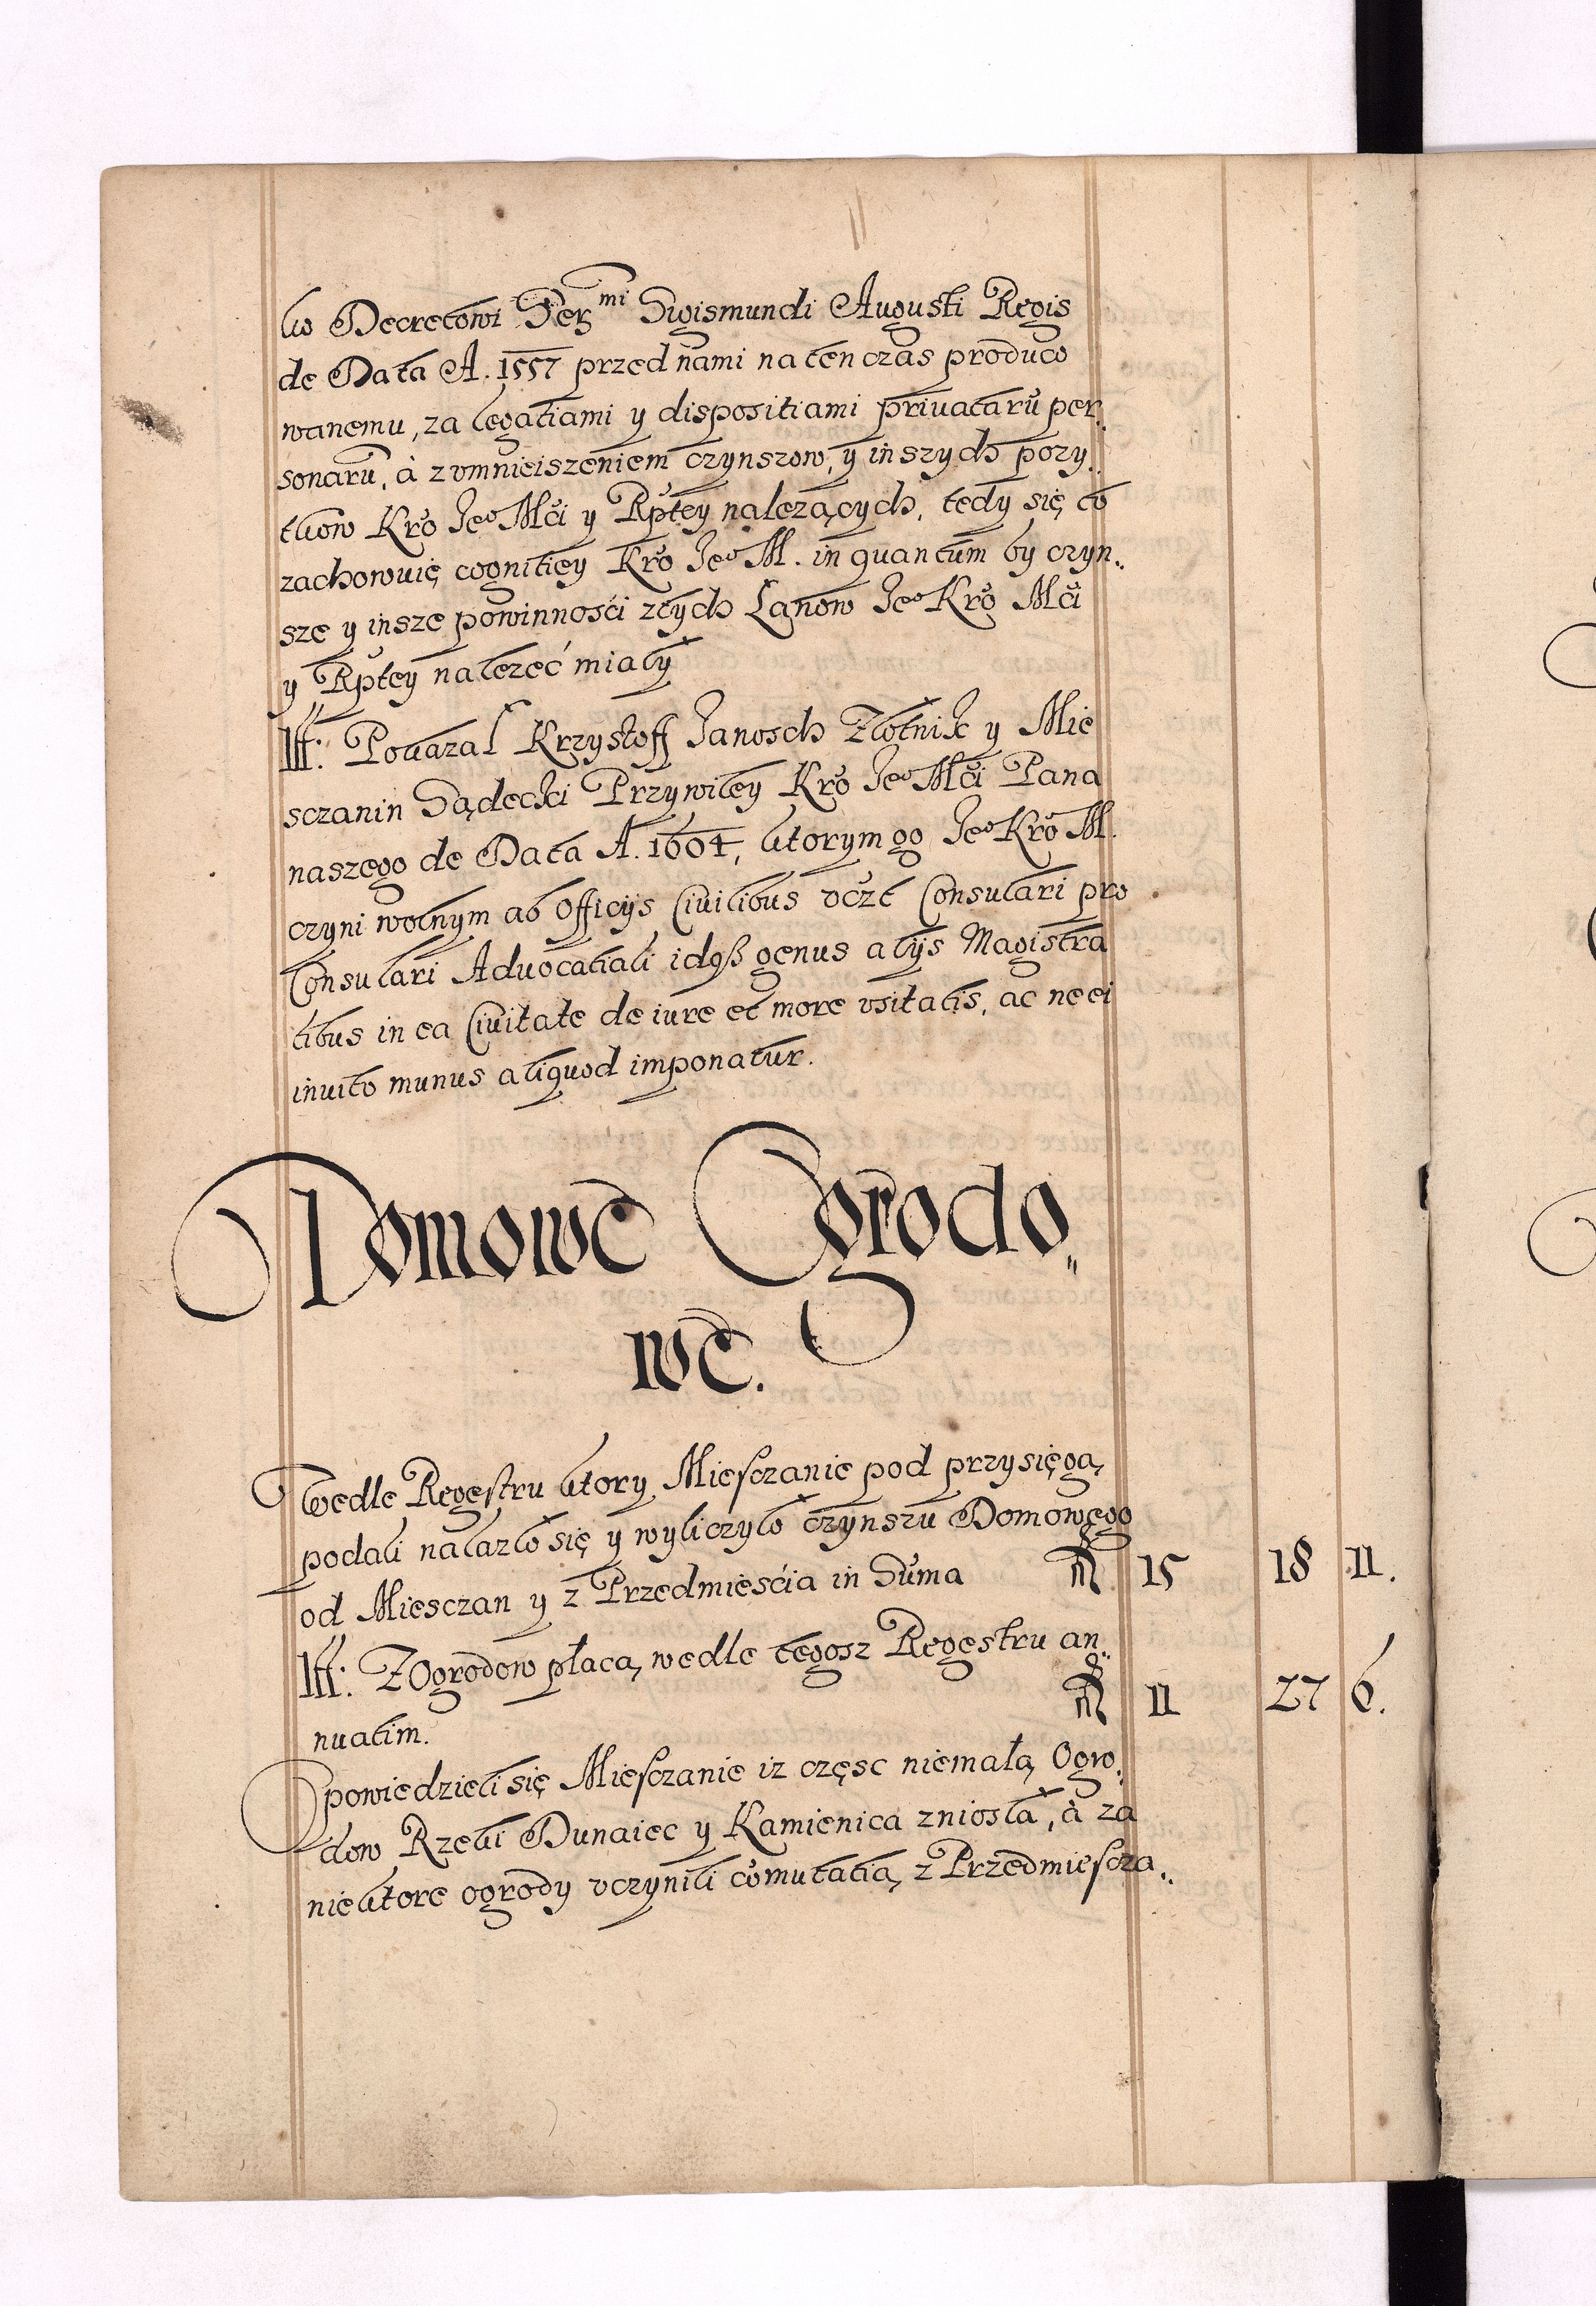 ko Decretowi Ser^mi Sigismundi Augusti Regis
de Data A. 1557 przed nami na ten czas produco
wanemu, za legatiami y dispositiami priuatarū per„
sonarū, à z vmnieiszeniem czynszow, y inszych pozy„
tkow Kro Jeo Mći y Rptey nalezących, tedy się to
zachowuię cognitiey Kro Jeo M. in quantum by czyn„
sze y insze powinnośći z tych Łanow Jeo Kro Mći
y Rptey nalezeć miały
Itt: Pokazał Krzysztoff Janosch Złotnik y Mie
sczanin Sądecki Przywiley Kro Jeo Mći Pana
naszego de Data A. 1604, ktorym go Jeo Kro M.
czyni wolnym ab Officijs Ciuilibus vczt Consulari pro
Consulari Aduocatiali idqß genus alijs Magistra
tibus in ea Ciuitate de iure et more vsitatis, ac ne ei
inuito munus aliquod imponatur.
Domowe Ogrodo„
we.
Wedle Regestru ktory Miesczanie pod przysięgą
podali nalazło się y wyliczyło czynszu Domowego
od Miesczan y z Przedmieśćia in Suma 15 18 11.
Itt: Z Ogrodow płacą wedle tegosz Regestru an„
nuatim. 11 27 6.
Opowiedzieli się Miesczanie iz częsc niemałą Ogro„
dow Rzeki Dunaiec y Kamienica zniosła, à za
niektore ogrody vczynili comutatią z Przedmiescza„